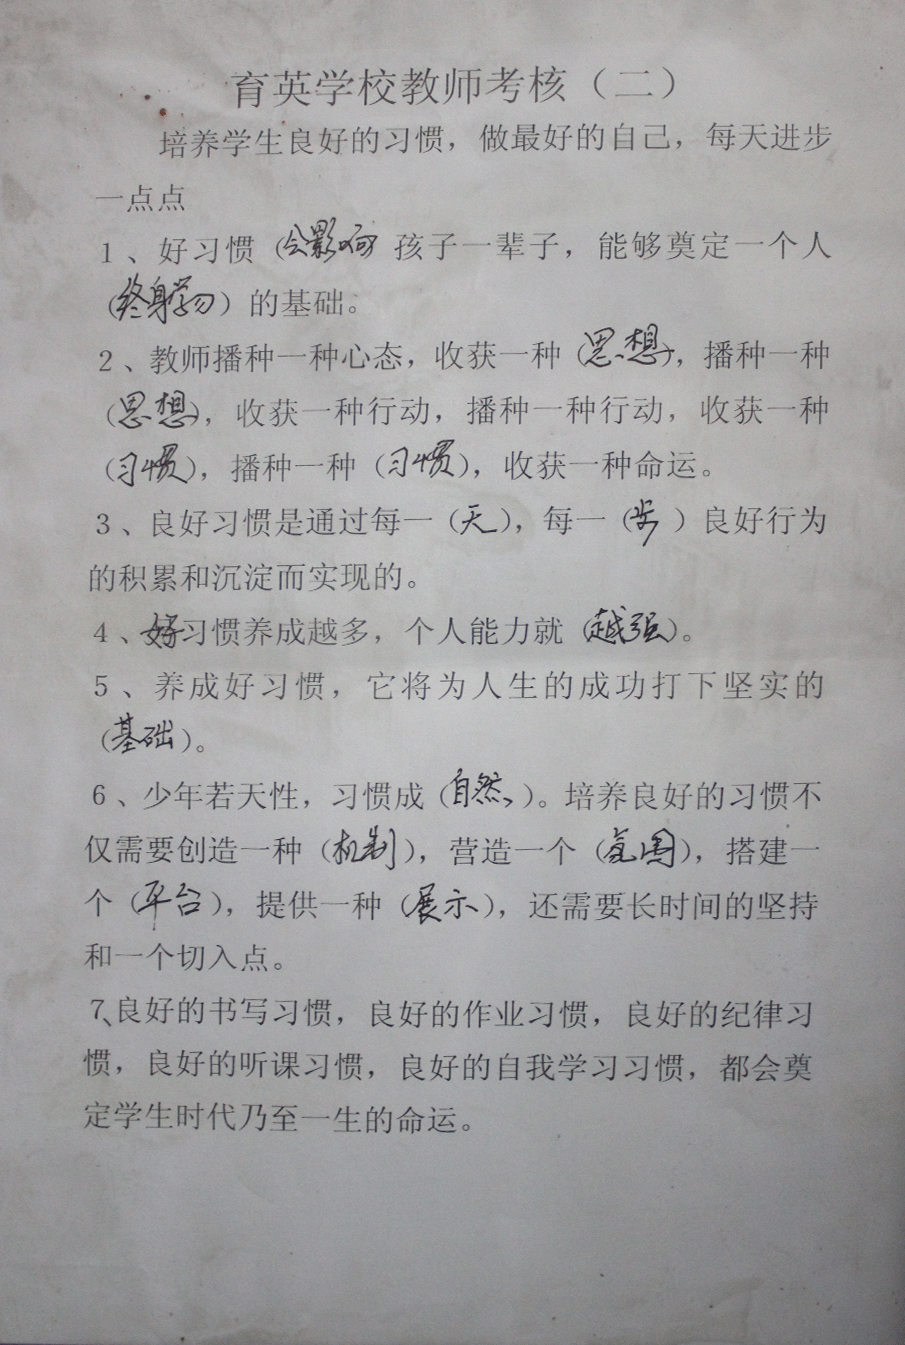 育英学校教师考核（二）
培养学生良好的习惯，做最好的自己，每天进步
一点点
1、好习惯（会影响 孩子一辈子，能够奠定一个人
（终身学习）的基础。
2、教师播种一种心态，收获一种（思想），播种一种
（思想），收获一种行动，播种一种行动，收获一种
（习惯），播种一种（习惯），收获一种命运。
3、良好习惯是通过每一（天），每一（步）良好行为
的积累和沉淀而实现的。
4、好习惯养成越多，个人能力就（越强）。
5、养成好习惯，它将为人生的成功打下坚实的
（基础）。
6、少年若天性，习惯成（自然）。培养良好的习惯不
仅需要创造一种（机制），营造一个（氛围），搭建一
个（平台），提供一种（展示），还需要长时间的坚持
和一个切入点。
7、良好的书写习惯，良好的作业习惯，良好的纪律习
惯，良好的听课习惯，良好的自我学习习惯，都会奠
定学生时代乃至一生的命运。